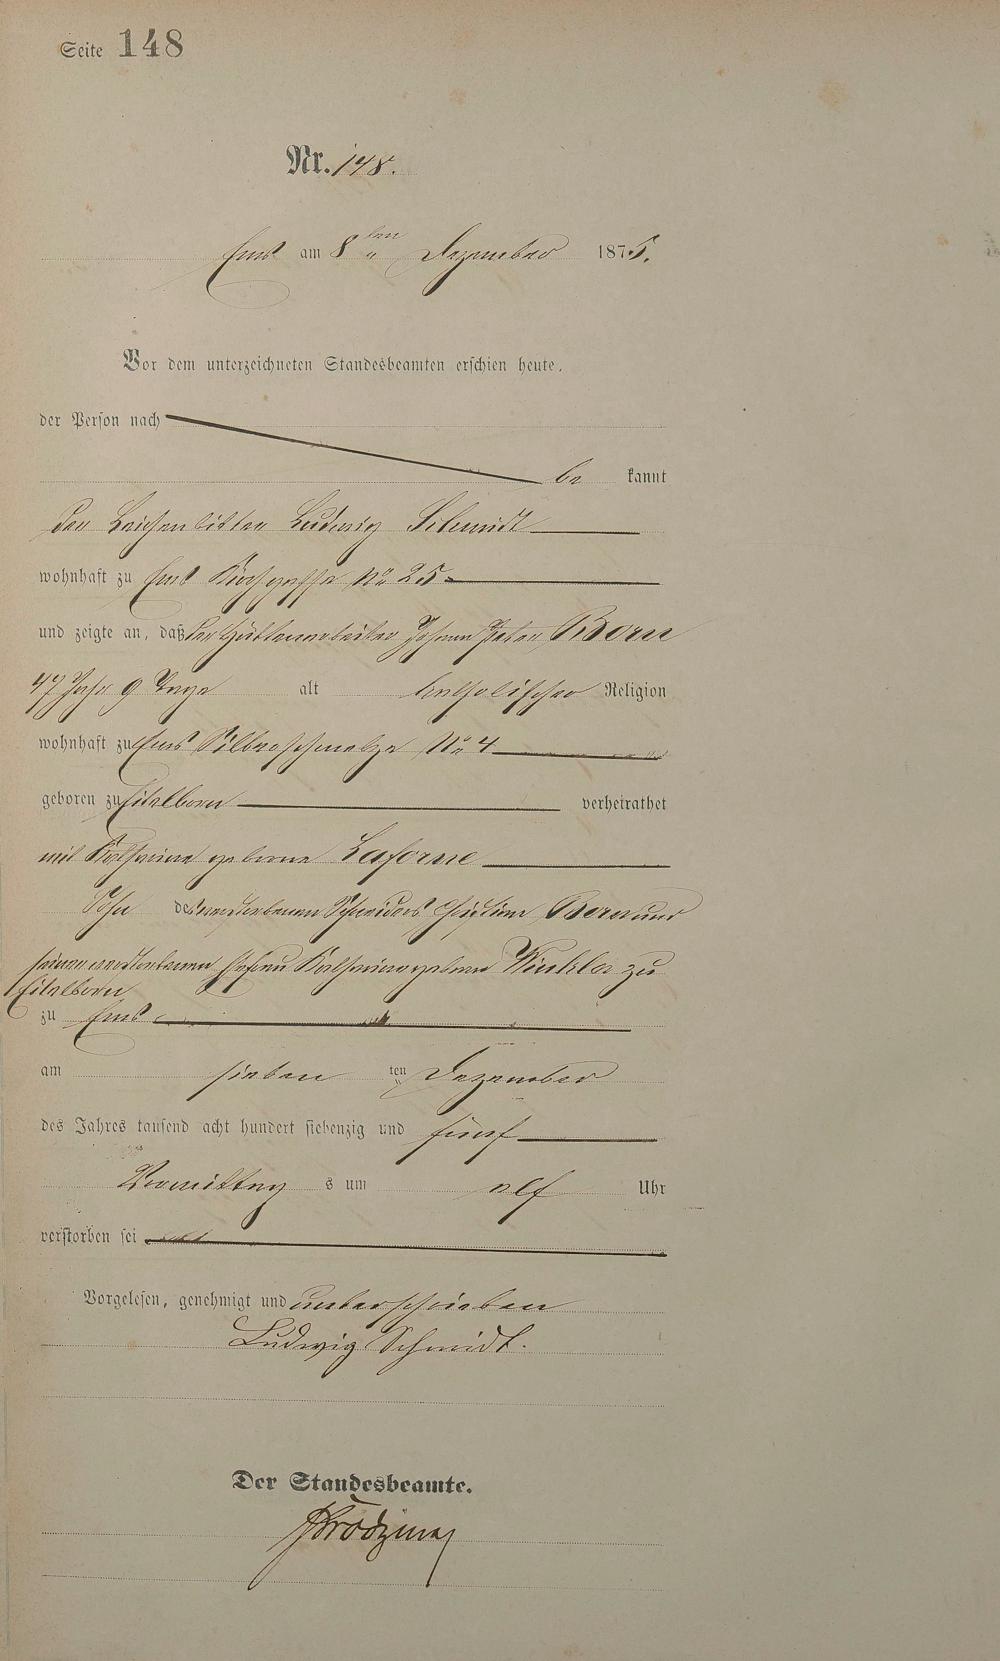 Seite 148
Nr. 148.
Ems am 8ten Dezember 1875.
Vor dem unterzeichneten Standesbeamten erschien heute,
der Person nach
be kannt
der Leichenbitter Ludwig Schmidt
wohnhaft zu Ems Kirchgasse No 25
und zeigte an, daß der Hüttenarbeiter Johann Peter Born
47 Jahr 9 Tage alt katholischer Religion
wohnhaft zu Ems Silberschmelze No 4
geboren zu Eitelborn verheirathet
mit Katharina geborne Laforne
Sohn des verstorbenen Schneiders Christian Born und
seiner verstorbenen Ehefrau Katharina gebornen Winkler zu
Eitelborn
zu Ems
am sieben ten Dezember
des Jahres tausend acht hundert siebenzig und fünf
Vormittag s um elf Uhr
verstorben sei
Vorgelesen, genehmigt und unterschrieben
Ludwig Schmidt.
Der Standesbeamte.